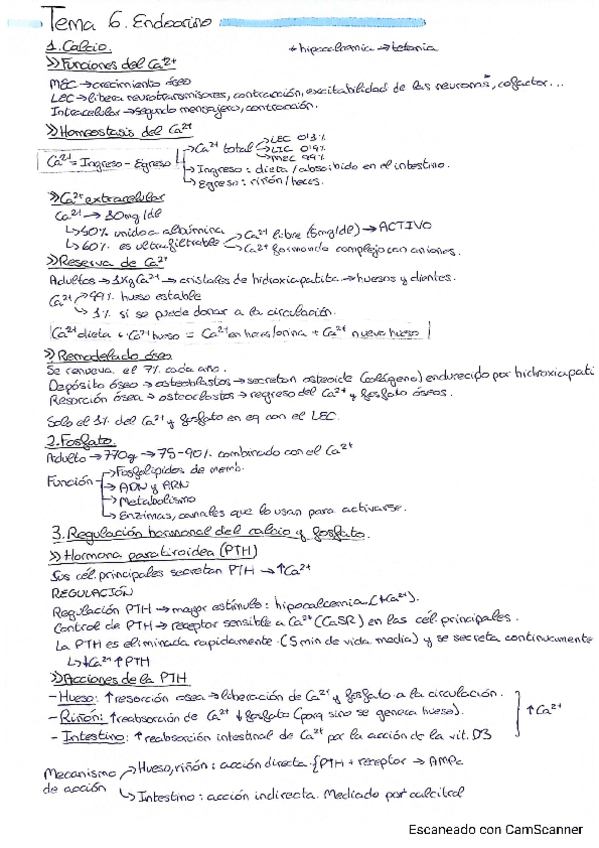 Tema 6. Endocrino
1. Calcio. * hipocalcemia → tetania
» Funciones del Ca2+
MEC → crecimiento óseo
LEC → libera neurotransmisores, contracción, excitabilidad de las neuronas, cofactor...
Intracelular → segundo mensajero, contracción.
» Homeostasis del Ca2+
Ca2+ = Ingreso - Egreso
→ Ca2+ total → LEC 0'3%
→ LIC 0'9%
→ MEC 99%
→ Ingreso: dieta / absorbido en el intestino.
→ Egreso: riñón/heces.
» Ca2+ extracelular
Ca2+ → 30mg/dl
↳ 40% unido a albúmina
↳ 60% es ultrafiltrable → Ca2+ libre (5mg/dl) → ACTIVO
→ Ca2+ formando complejo con aniones.
» Reserva de Ca2+
Adultos → 1Kg Ca2+ → cristales de hidroxiapatita → huesos y dientes.
Ca2+ → 99% hueso estable
↳ 1% si se puede donar a la circulación.
Ca2+ dieta + Ca2+ hueso = Ca2+ en heces/orina + Ca2+ nuevo hueso
» Remodelado óseo
Se renueva el 7% cada año.
Depósito óseo → osteoblastos → secretan osteoide (colágeno) endurecido por hidroxiapati
Resorción ósea → osteoclastos → regreso del Ca2+ y fosfato óseos.
Solo el 1% del Ca2+ y fosfato en eq con el LEC.
2. Fosfato.
Adulto → 770g → 75-90% combinado con el Ca2+
Función → Fosfolípidos de memb.
→ ADN y ARN
→ Metabolismo
→ Enzimas, canales que lo usan para activarse.
3. Regulación hormonal del calcio y fosfato.
» Hormona paratiroidea (PTH)
Sus cél. principales secretan PTH → ↑Ca2+
REGULACIÓN
Regulación PTH → mayor estímulo: hipocalcemia (↓Ca2+).
Control de PTH → receptor sensible a Ca2+ (CaSR) en las cél. principales.
La PTH es eliminada rapidamente (5 min de vida media) y se secreta continuamente
↳ ↓Ca2+ ↑PTH
» Acciones de la PTH
- Hueso: ↑ resorción osea → liberación de Ca2+ y fosfato a la circulación.
- Riñón: ↑ reabsorción de Ca2+ ↓ fosfato (porq sino se genera hueso). ↑Ca2+
- Intestino: ↑ reabsorción intestinal de Ca2+ por la acción de la vit. D3
Mecanismo de acción → Hueso, riñón: acción directa. {PTH + receptor → AMPc
↳ Intestino: acción indirecta. Mediado por calcitrol
Escaneado con CamScanner